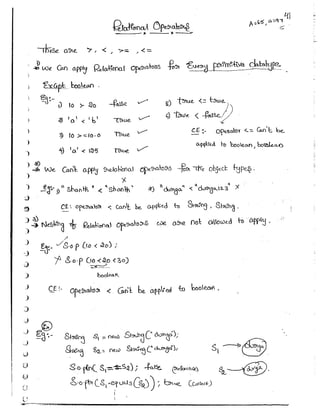 41
Relational Operators
A:65, a:97
These are >, <, >=, <=
1) We Can apply Relational operators for Every primitive datatype
Except boolean.
Eg:- 1) 10 > 20 false ✓ 5) true <= true
2) 'a' < 'b' True ✓ 6) True < false
3) 10 >= 10.0 True ✓ CE:- operator <= Can't be
4) 'a' < 125 True ✓ applied to boolean, boolean
2) We Can't apply relational operators for The object types.
Eg:- 1) "Shanth" < "Shanth" X 2) "durga" < "durga123" X
CE: operator < Can't be applied to String, String.
3) Nesting of Relational operators we are not allowed to apply.
Eg:- ✓ S.o.p (10 < 20);
X S.o.p (10 < 20 < 30)
boolean
CE:- operator < Can't be applied to boolean,
Eg:- String S1 = new String("durga");
String S2 = new String("durga");
S1 → durga
S.o.pln( S1 == S2); false (reference)
S2 → durga
S.o.pln (S1.equals(S2)); true (Content)